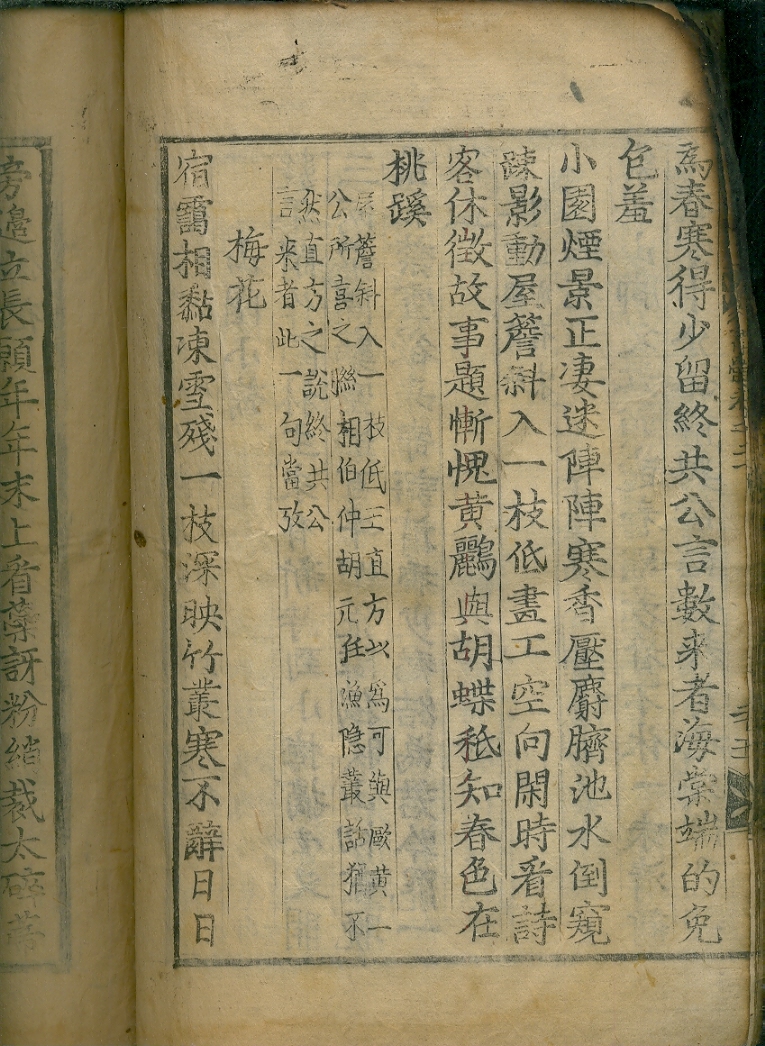 為春寒得少留終共公言數来者海棠端的免
包羞
小園煙景正淒迷陣陣寒香壓麝臍池水倒窺
疎影動屋簷斜入一枝低畫工空向閑時看詩
客休徵故事題慚愧黄鸝與胡蝶秪知春色在
桃蹊
屋簷斜入一枝低王直方以為可與歐黄一
公所喜之擬相伯仲胡元任漁隐叢話猶不
然直方之說終共公
言来者此一句當攷
梅花
宿靄相黏凍雪殘一枝深映竹叢寒不辭日日
旁邊立長願年年末上看蘂訝粉綃裁太碎蒂